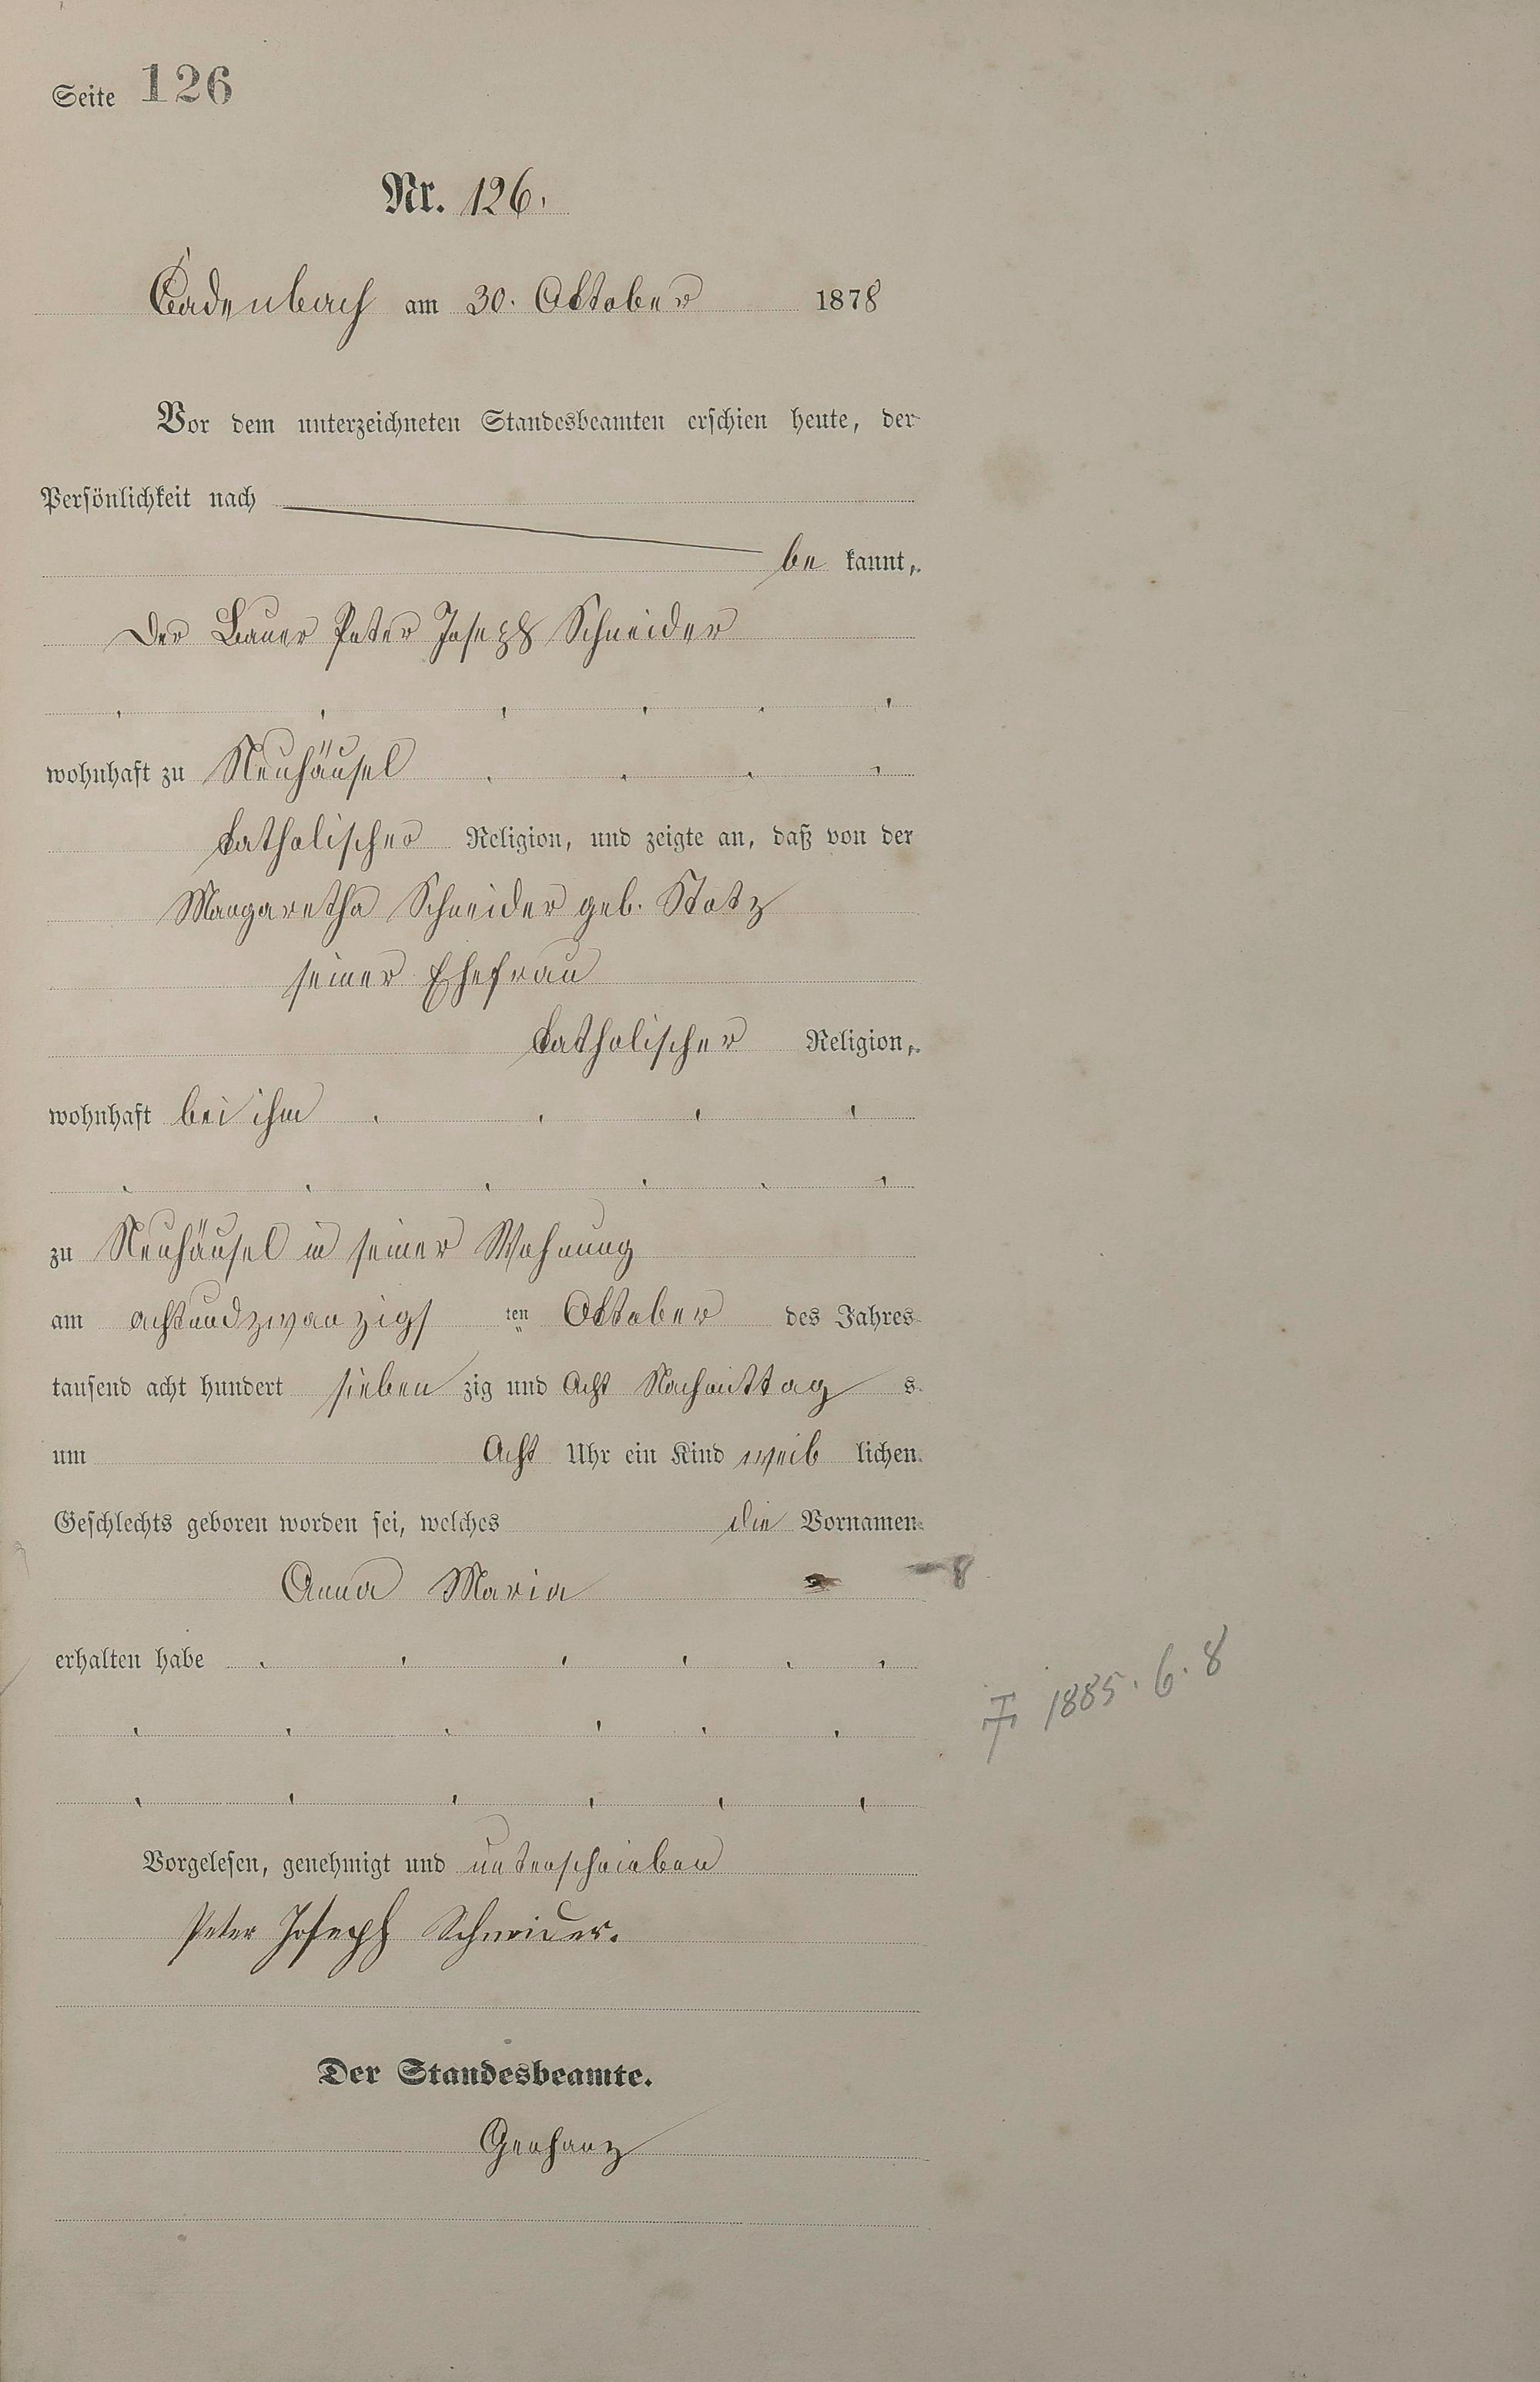 Seite 126
Nr. 126.
Cadenbach am 30. Oktober 1878
Vor dem unterzeichneten Standesbeamten erschien heute, der
Persönlichkeit nach
be kannt,
Der Bauer Peter Joseph Schneider
wohnhaft zu Neuhäusel
katholischer Religion, und zeigte an, daß von der
Margaretha Schneider geb. Stotz
seiner Ehefrau
katholischer Religion,
wohnhaft bei ihm
zu Neuhäusel in seiner Wohnung
am achtundzwanzigs ten Oktober des Jahres
tausend acht hundert sieben zig und Acht Nachmittag s
um Acht Uhr ein Kind weib lichen
Geschlechts geboren worden sei, welches die Vornamen
Anna Maria
erhalten habe
† 1885. 6. 8
Vorgelesen, genehmigt und unterschrieben
Peter Joseph Schneider.
Der Standesbeamte.
Gerharz